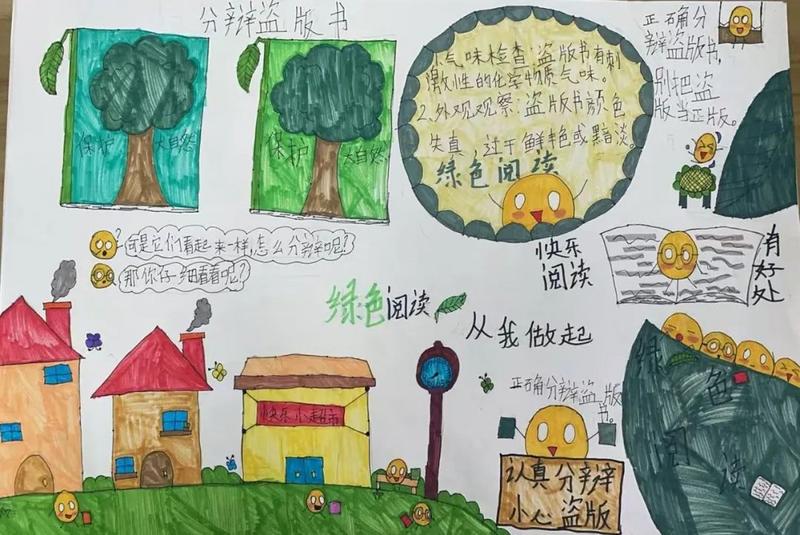 分辩盗版书
保护 大自然
保护 大自然
1.气味检查:盗版书有刺
激性的化学物质气味。
2.外观观察:盗版书颜色
失真,过于鲜艳或黯淡。
绿色阅读
正确分
辩盗版书,
别把盗
版当正版。
可是它们看起来一样,怎么分辩呢?
那你仔细看看呢?
快乐
阅读
有
好
处
绿色阅读
从我做起
快乐小超市
正确分辩盗版
书。
认真分辩
小心盗版
绿色
阅读